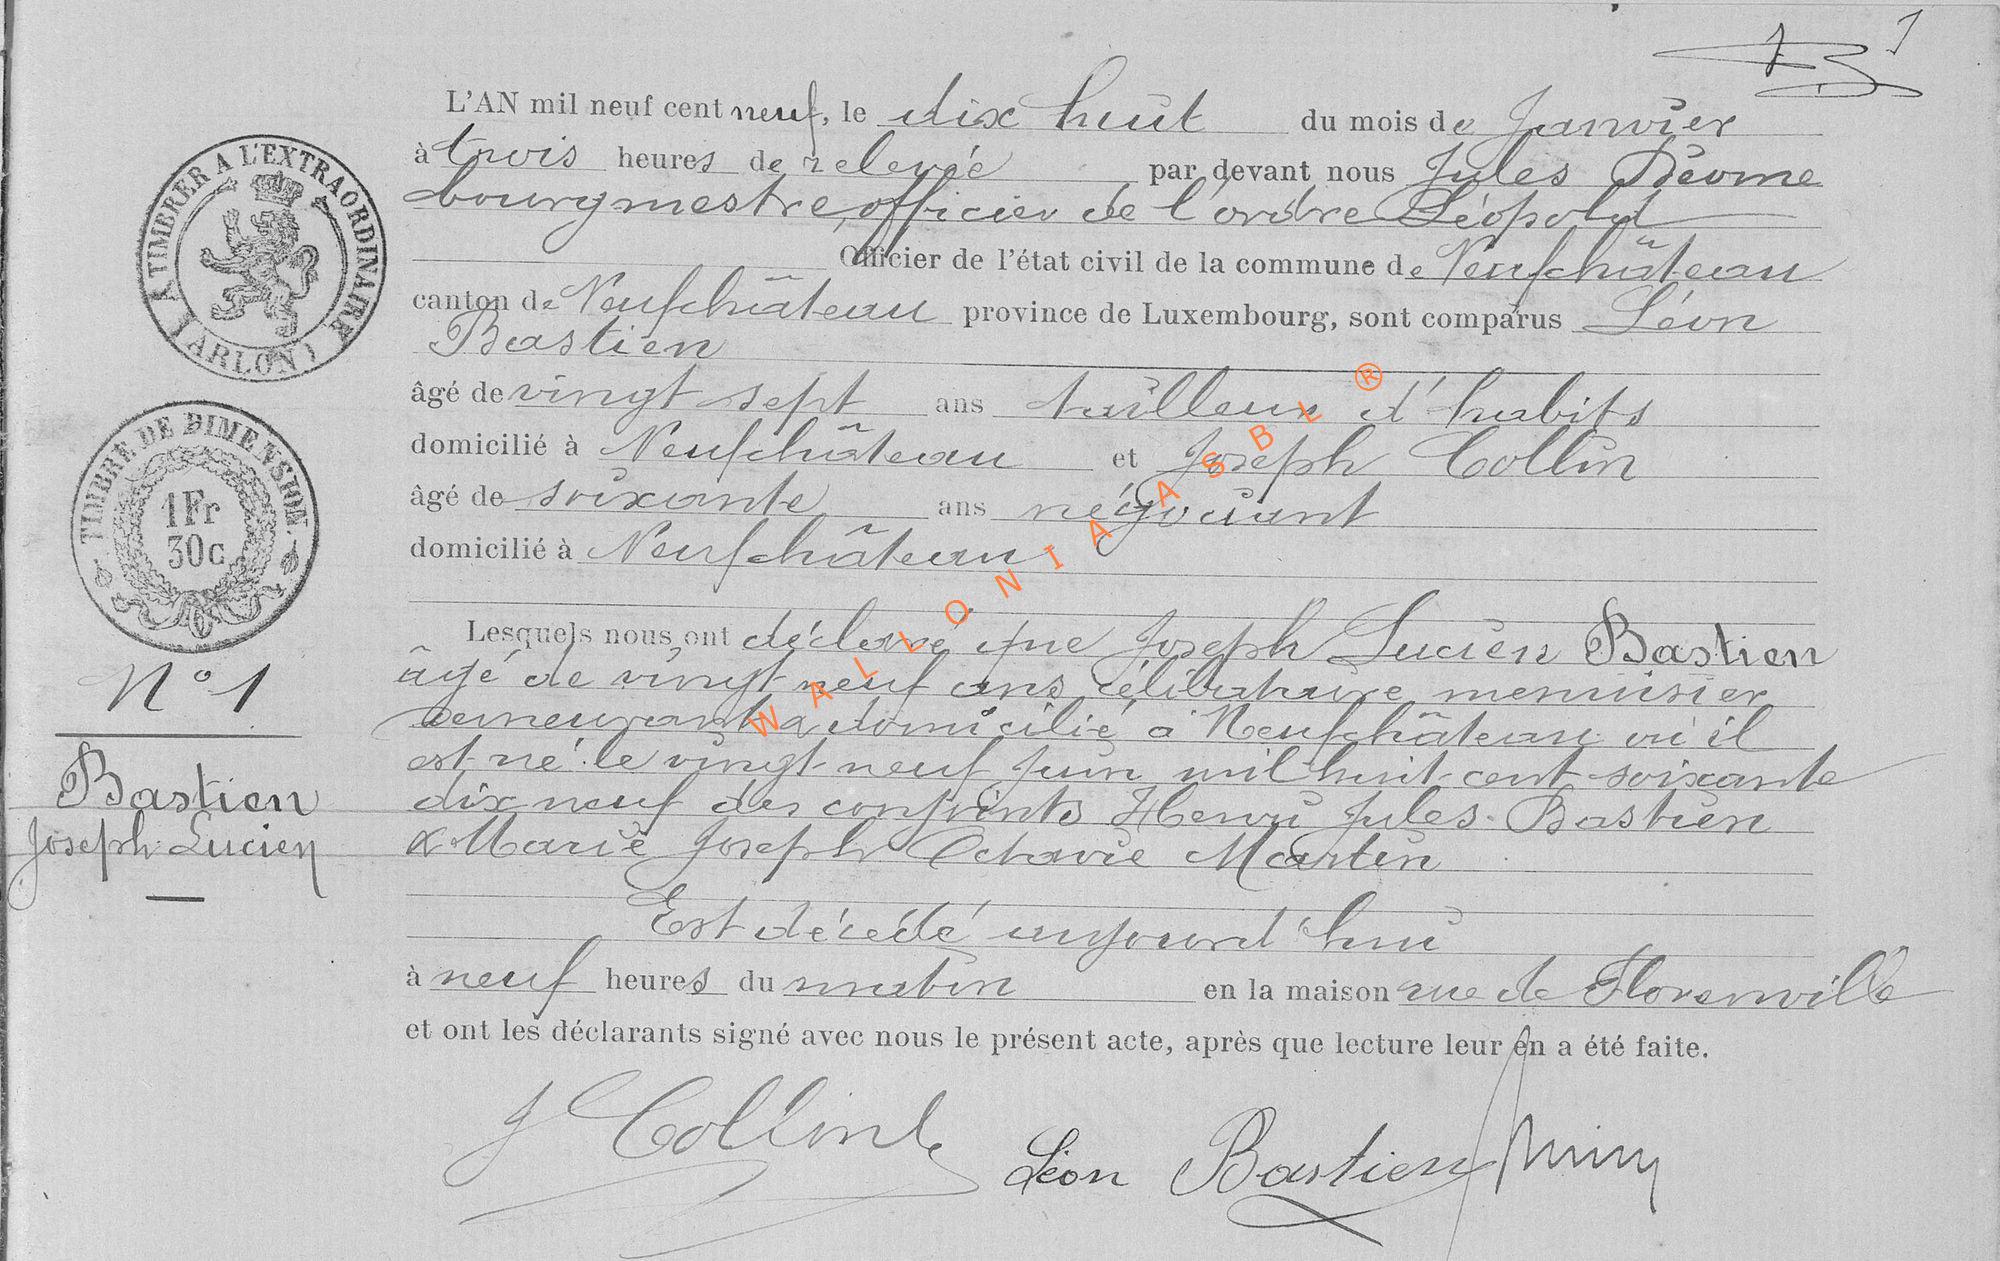 1
L'AN mil neuf cent neuf, le dix huit du mois de Janvier
à trois heures de relevée par devant nous Jules
bourgmestre, officier de l'ordre Léopold
Officier de l'état civil de la commune de Neufchâteau
canton de Neufchâteau province de Luxembourg, sont comparus Léon
Bastien
âgé de vingt sept ans tailleur d'habits
domicilié à Neufchâteau et Joseph Collin
âgé de soixante ans négociant
domicilié à Neufchâteau
Lesquels nous ont déclaré que Joseph Lucien Bastien
âgé de vingt neuf ans célibataire menuisier
demeurant & domicilié à Neufchâteau où il
est né le vingt-neuf Juin mil huit-cent-soixante
dix neuf des conjoints Henri Jules Bastien
& Marie Joseph Octavie Martin
Est décédé aujourd'hui
à neuf heures du matin en la maison rue de Florenville
et ont les déclarants signé avec nous le présent acte, après que lecture leur en a été faite.
J Collin
Léon Bastien
A TIMBRER A L'EXTRAORDINAIRE
(ARLON)
TIMBRE DE DIMENSION
1Fr
30c
N° 1
Bastien
Joseph Lucien
WALLONIA ASBL ®